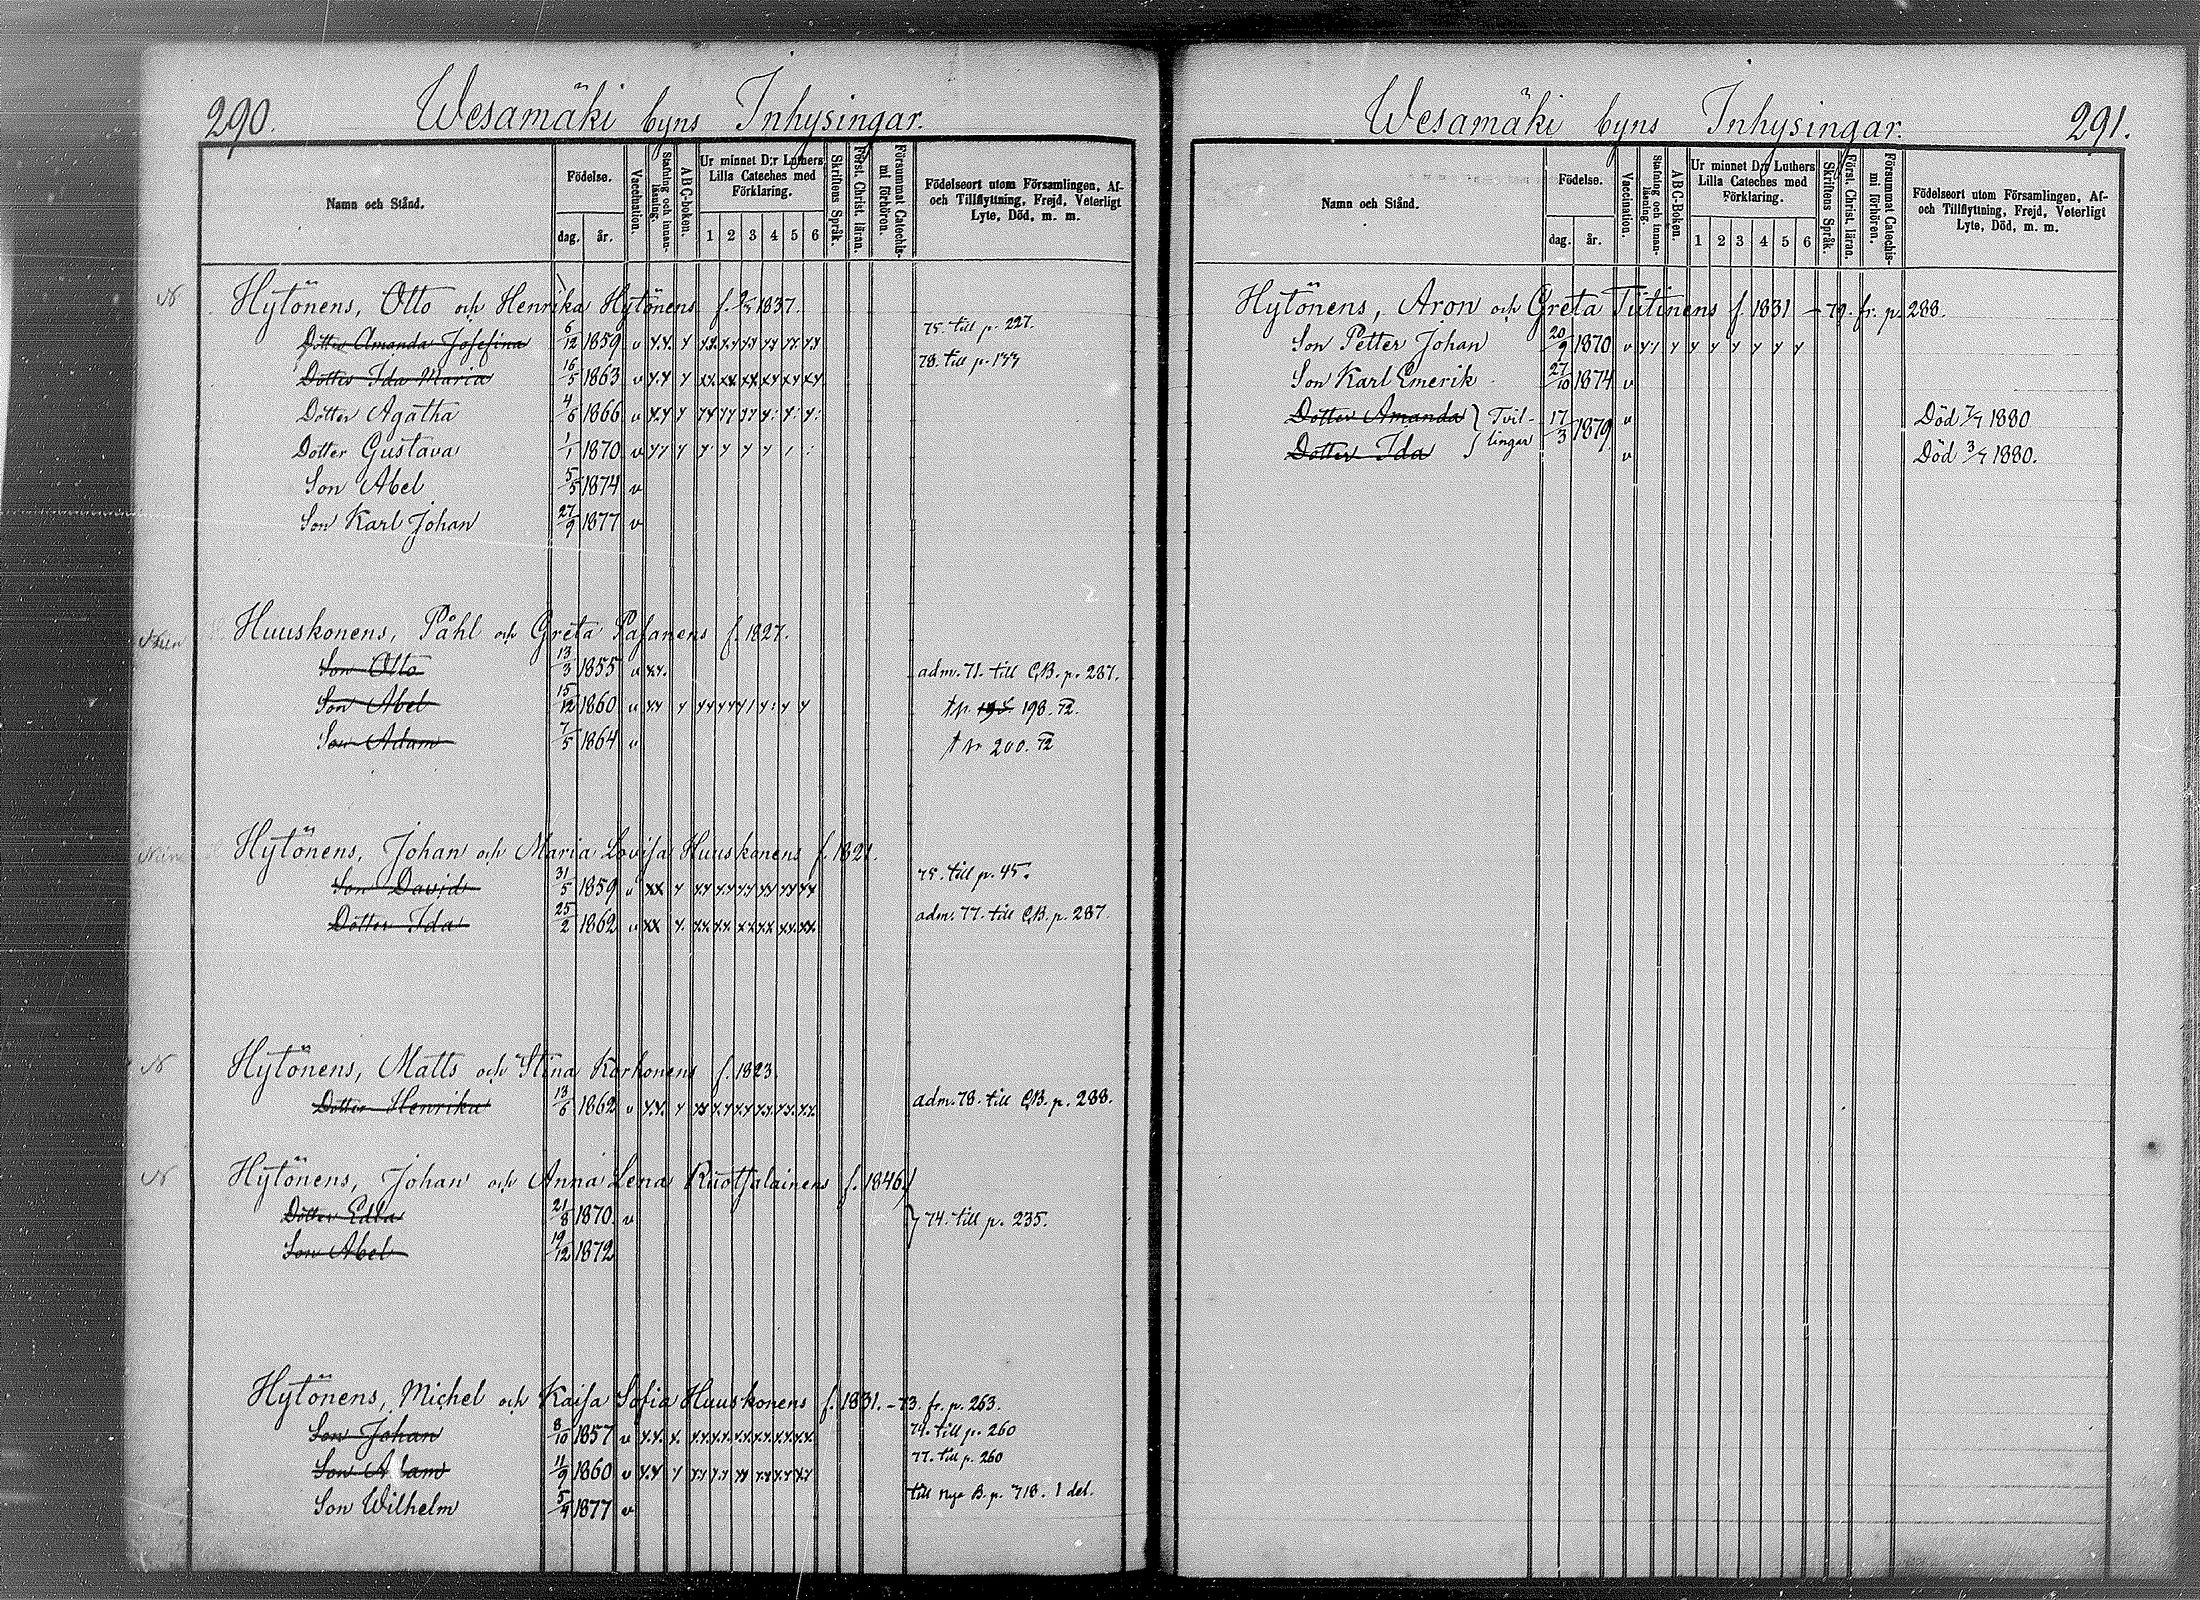 290. Wesamäki byns Inhysingar.
Namn och Stånd. Födelse. dag. år. Vaccination. Stafning och innanläsning. ABC-boken. Ur minnet D:r Luthers Lilla Cateches med Förklaring. 1 2 3 4 5 6 Skriftens Språk. Först. Christ. läran. Försummat Catechismi förhören. Födelseort utom Församlingen, Af- och Tillflyttning, Frejd, Veterligt Lyte, Död, m. m.
Hytönens, Otto och Henrika Hytönens f. 1837.
Dotter Amanda Josefina 6/12 1859 v 75. till p. 227.
Dotter Ida Maria 16/5 1863 v 78. till p.
Dotter Agatha 4/6 1866 v
Dotter Gustava 1/1 1870 v
Son Abel 5/5 1874 v
Son Karl Johan 27/9 1877 v
Huuskonens, Påhl och Greta Pasanens f. 1827.
Son Otto 13/3 1855 v adm. 71. till C.B. p. 287.
Son Abel 15/12 1860 v 198. 72.
Son Adam 7/5 1864 v † Nr 200. 72
Hytönens, Johan och Maria Lovisa Huuskonens f. 1821.
Son David 31/5 1859 v 75. till p. 45.
Dotter Ida 25/2 1862 v adm. 77. till C.B. p. 287.
Hytönens, Matts och Stina Korhonens f. 1823.
Dotter Henrika 13/6 1862 v adm. 78. till C.B. p. 288.
Hytönens, Johan och Anna Lena Ruotsalainens f. 1846.
Dotter Edla 21/8 1870. v } 74. till p. 235.
Son Abel 19/12 1872
Hytönens, Michel och Kaisa Sofia Huuskonens f. 1831. – 73. fr. p. 263.
Son Johan 8/10 1857 v 74. till p. 260
Son Adam 11/9 1860 v 77. till p. 260
Son Wilhelm 5/4 1877 v till nya B. p. 718. 1 del.
Wesamäki byns Inhysingar. 291.
Namn och Stånd. Födelse. dag. år. Vaccination. Stafning och innanläsning. ABC-Boken. Ur minnet D:r Luthers Lilla Cateches med Förklaring. 1 2 3 4 5 6 Skriftens Språk. Först. Christ. läran. Försummat Catechismi förhören. Födelseort utom Församlingen, Af- och Tillflyttning, Frejd, Veterligt Lyte, Död, m. m.
Hytönens, Aron och Greta Tiitinens f. 1831 – 79. fr. p. 288.
Son Petter Johan 20/9 1870 v
Son Karl Emerik 27/10 1874 v
Dotter Amanda } Tvil- 17/3 1879 v Död 7/7 1880
Dotter Ida } lingar v Död 3/7 1880.